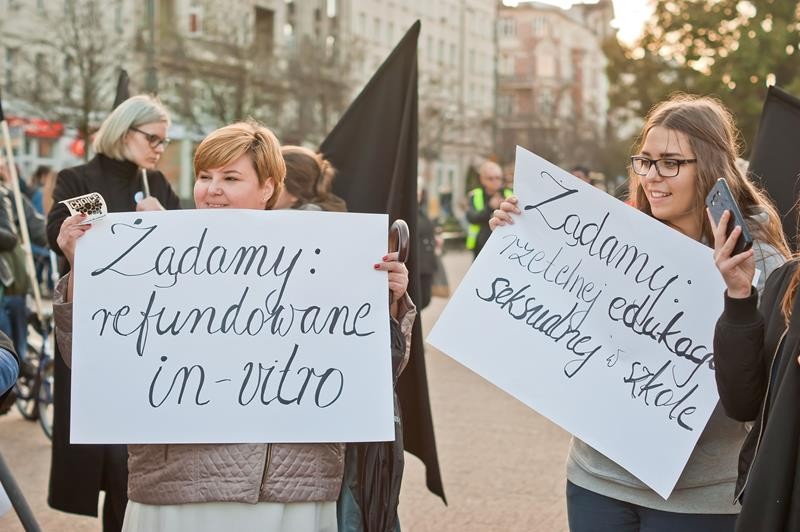 Żądamy:
refundowane
in-vitro
Żądamy:
rzetelnej edukacji
seksualnej w szkole